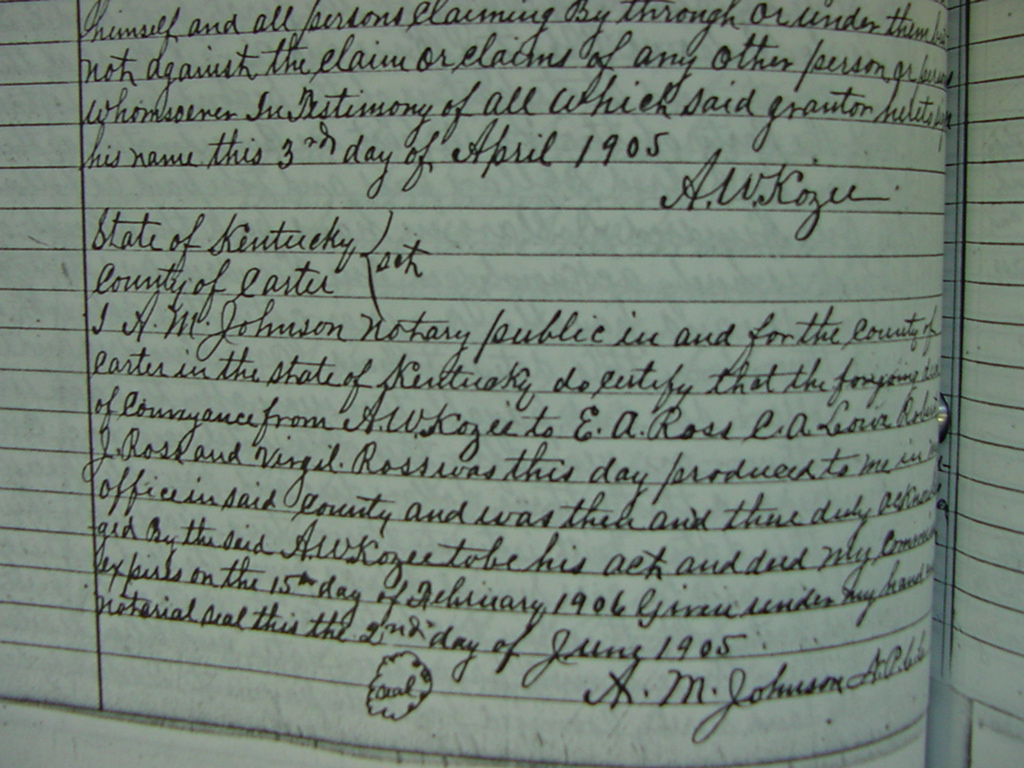 himself and all persons claiming By through Or under them but
not against the claim Or claims of any Other person or persons
Whomsoever In Testimony of all Which said grantor hereto
his name this 3rd day of April 1905
A.W. Kozee
State of Kentucky
County of Carter } sct
I A. M. Johnson Notary public in and for the County of
Carter in the state of Kentucky do certify that the foregoing deed
of Conveyance from A.W. Kozee to E. A. Ross C. A. Lowe Robert
J. Ross and Virgil. Ross was this day produced to me in my
office in said County and was then and there duly acknowled
ged By the said A W Kozee to be his act and deed My Commission
expires on the 15th day of February 1906 Given under My hand and
notarial seal this the 2nd day of June 1905
seal
A. M. Johnson N.P.C.C.